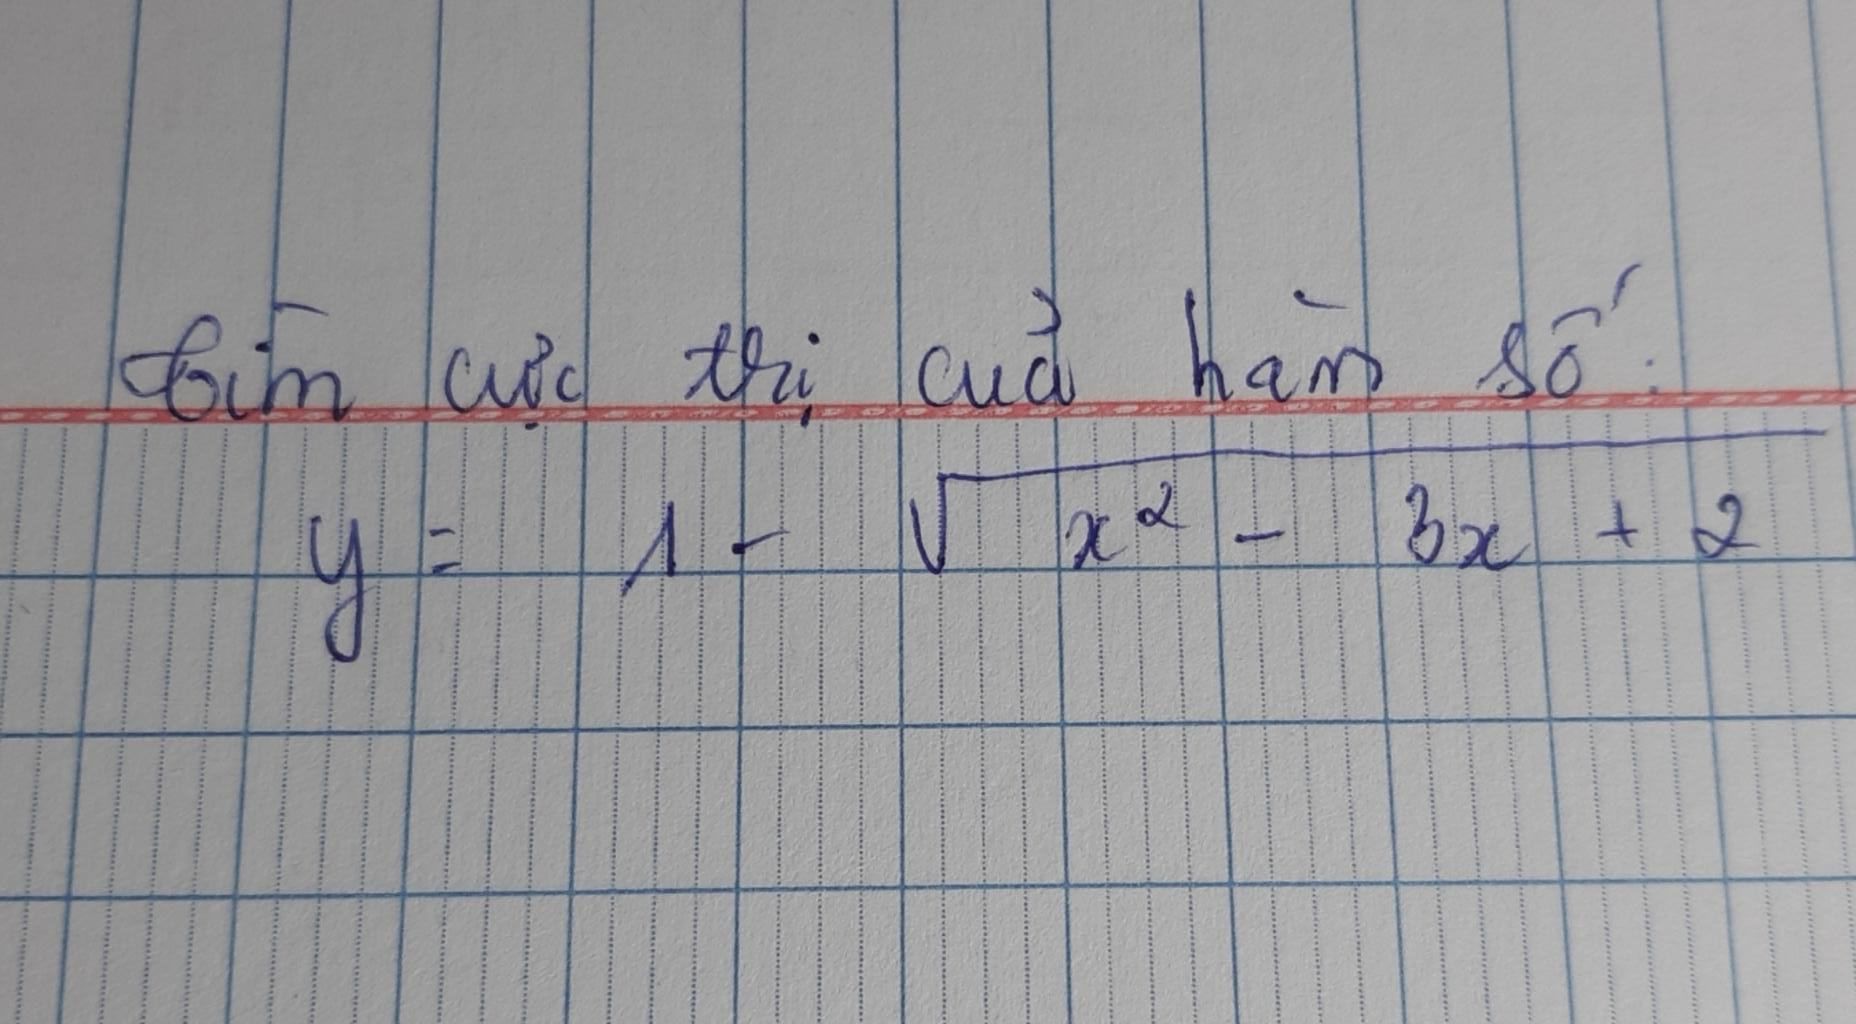 Tìm cực trị của hàm số:
y = 1 - √(x² - 3x + 2)